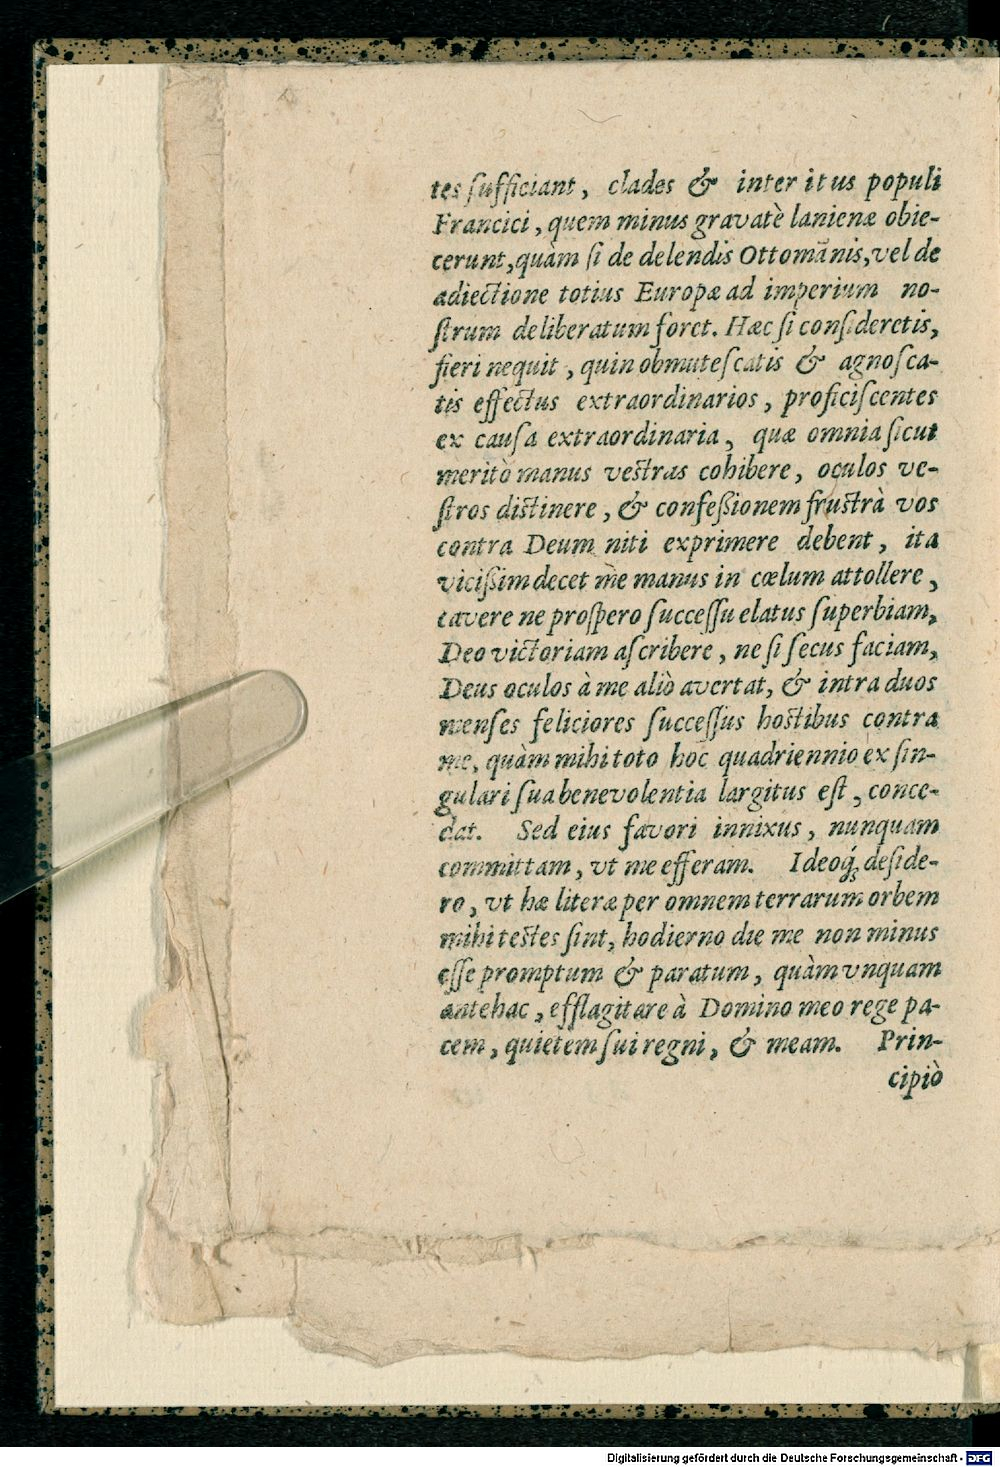 tes ſufficiant, clades & interitus populi
Francici, quem minus gravatè lanienæ obie-
cerunt, quàm ſi de delendis Ottomãnis, vel de
adiectione totius Europæ ad imperium no-
ſtrum deliberatum foret. Hæc ſi conſideretis,
fieri nequit, quin obmuteſcatis & agnoſca-
tis effectus extraordinarios, proficiſcentes
ex cauſa extraordinaria, quæ omnia ſicut
meritò manus vestras cohibere, oculos ve-
ſtros distinere, & confeßionem frustrà vos
contra Deum niti exprimere debent, ita
vicißim decet me manus in cœlum attollere,
cavere ne proſpero ſucceſſu elatus ſuperbiam,
Deo victoriam aſcribere, ne ſi ſecus faciam,
Deus oculos à me aliò avertat, & intra duos
menſes feliciores ſucceſſus hostibus contra
me, quàm mihi toto hoc quadriennio ex ſin-
gulari ſua benevolentia largitus eſt, conce-
dat. Sed eius favori innixus, nunquam
committam, vt me efferam. Ideoq́; deſide-
ro, vt hæ literæ per omnem terrarum orbem
mihi testes ſint, hodierno die me non minus
eſſe promptum & paratum, quàm vnquam
antehac, efflagitare à Domino meo rege pa-
cem, quietem ſui regni, & meam. Prin-
cipiò
Digitalisierung gefördert durch die Deutsche Forschungsgemeinschaft - DFG